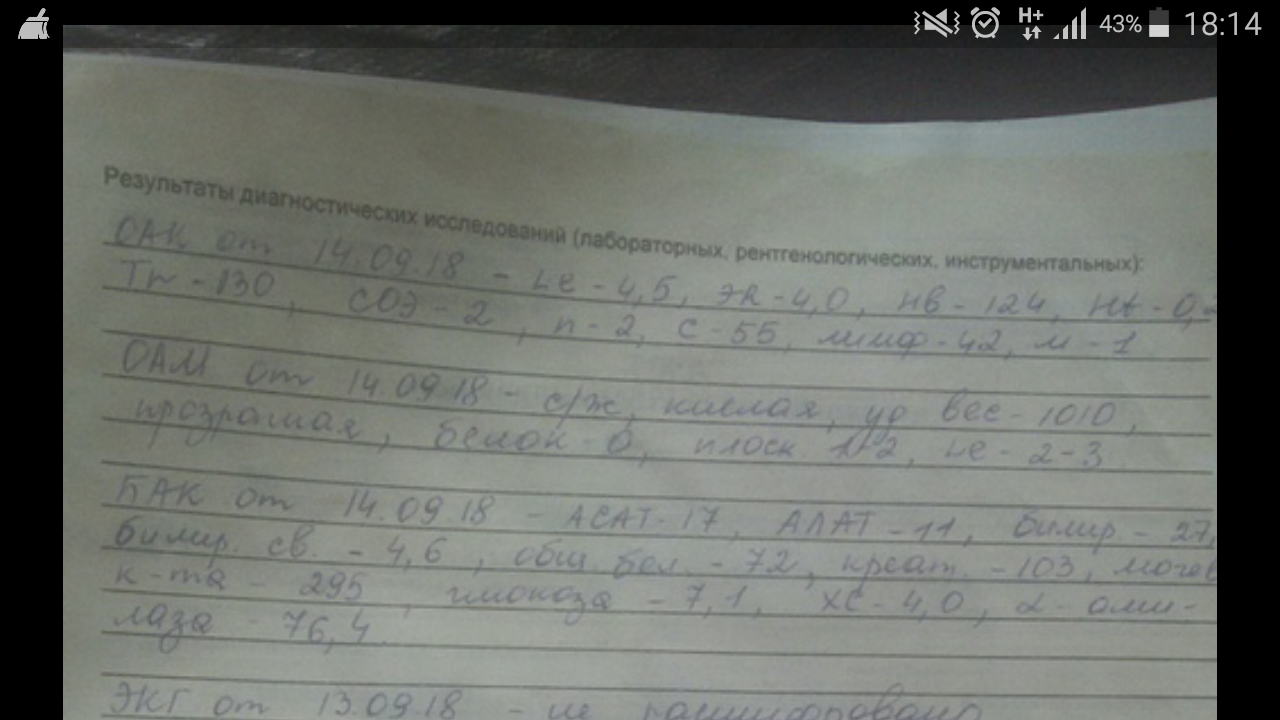 H+ 43% 18:14
Результаты диагностических исследований (лабораторных, рентгенологических, инструментальных):
ОАК от 14.09.18 - Le - 4,5, ЭR - 4,0, Нв - 124, Ht - 0,
Tr - 130, СОЭ - 2, п - 2, с - 55, лимф - 42, м - 1
ОАМ от 14.09.18 - с/ж, кислая, уд вес - 1010,
прозрачная, белок 0, плоск 1-2, Le - 2-3
БАК от 14.09.18 - АСАТ - 17, АЛАТ - 11, билир - 27,
билир. св. - 4,6, общ. бел. - 72, креат. - 103, мочев
к-та - 295, глюкоза - 7,1, ХС - 4,0, α - ами-
лаза - 76,4.
ЭКГ от 13.09.18 - не расшифровано